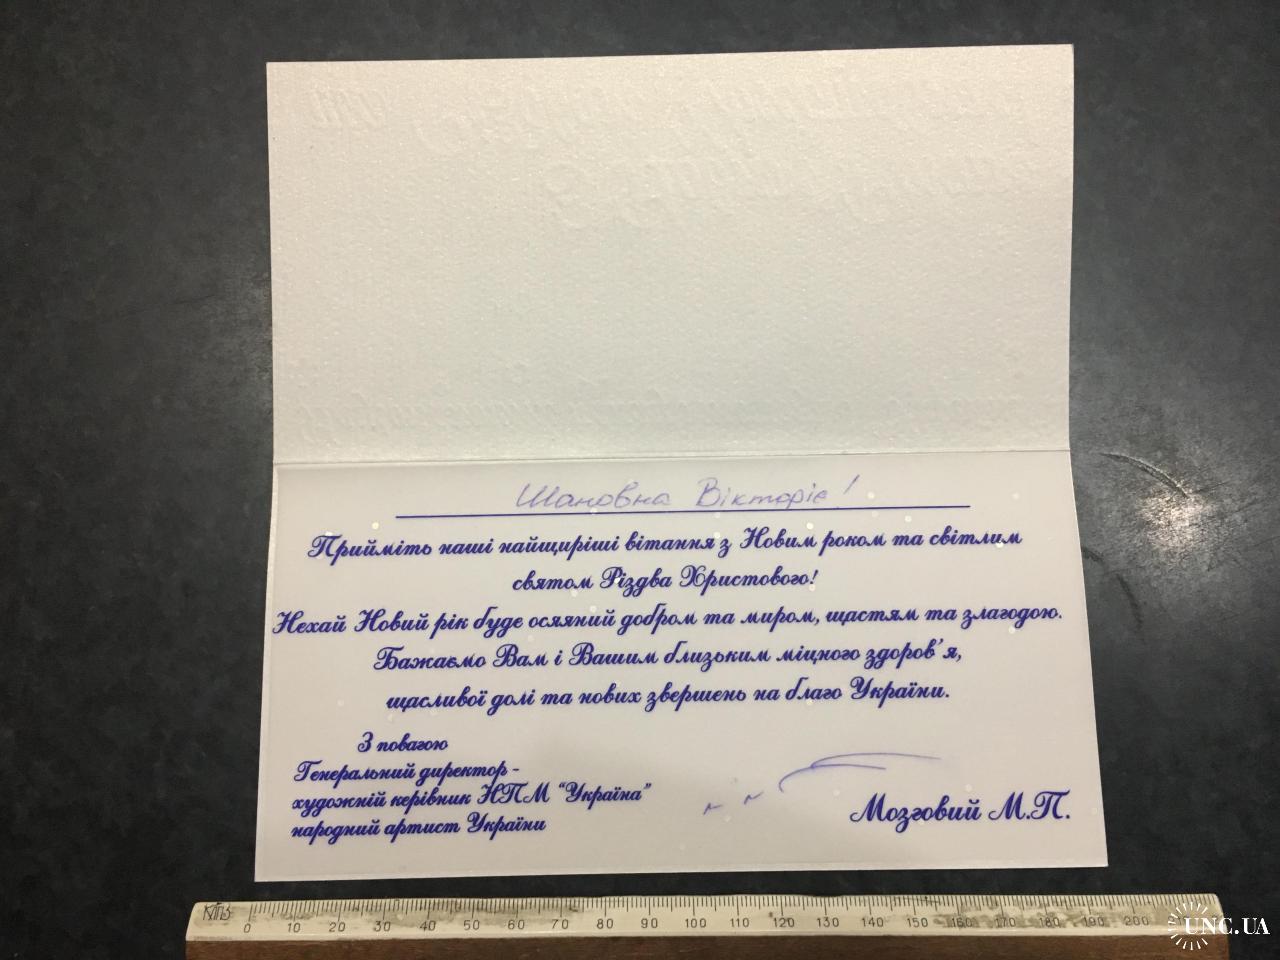 Шановна Вікторіє!
Прийміть наші найщиріші вітання з Новим роком та світлим
святом Різдва Христового!
Нехай Новий рік буде осяяний добром та миром, щастям та злагодою.
Бажаємо Вам і Вашим близьким міцного здоров'я,
щасливої долі та нових звершень на благо України.
З повагою
Генеральний директор -
художній керівник НПМ "Україна"
народний артист України
Мозговий М.П.
0 10 20 30 40 50 60 70 80 90 100 110 120 130 140 150 160 170 180 190 200
UNC.UA